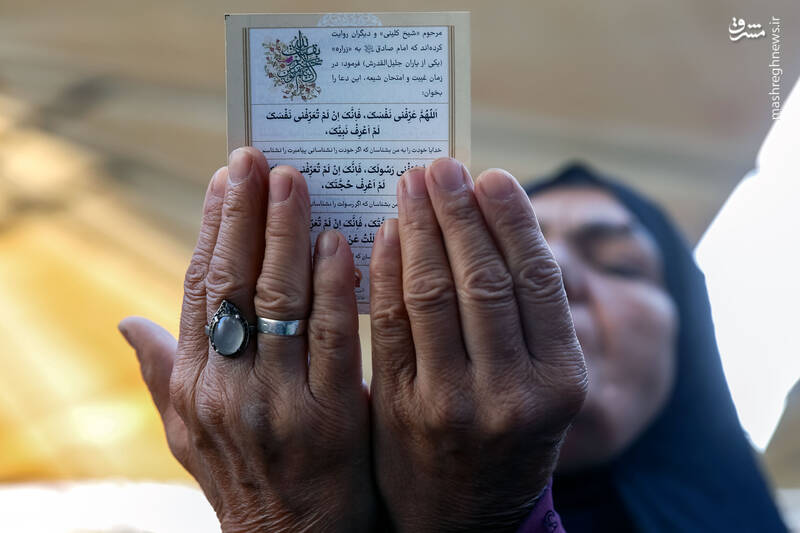 مرحوم «شیخ کلینی» و دیگران روایت
کرده‌اند که امام صادق به «زراره»
(یکی از یاران جلیل‌القدرش) فرمود: در
زمان غیبت و امتحان شیعه، این دعا را
بخوان:
اَللّهُمَّ عَرِّفْنى نَفْسَکَ، فَاِنَّکَ اِنْ لَمْ تُعَرِّفْنى نَفْسَکَ
لَمْ اَعْرِفْ نَبِیَّکَ،
خدایا خودت را به من بشناسان که اگر خودت را نشناسانی پیامبرت را نشناسم
رَسُولَکَ، فَاِنَّکَ اِنْ لَمْ تُعَرِّفْنى
لَمْ اَعْرِفْ حُجَّتَکَ،
من بشناسان که اگر رسولت را
فَاِنَّکَ اِنْ لَمْ
مشرق
mashreghnews.ir